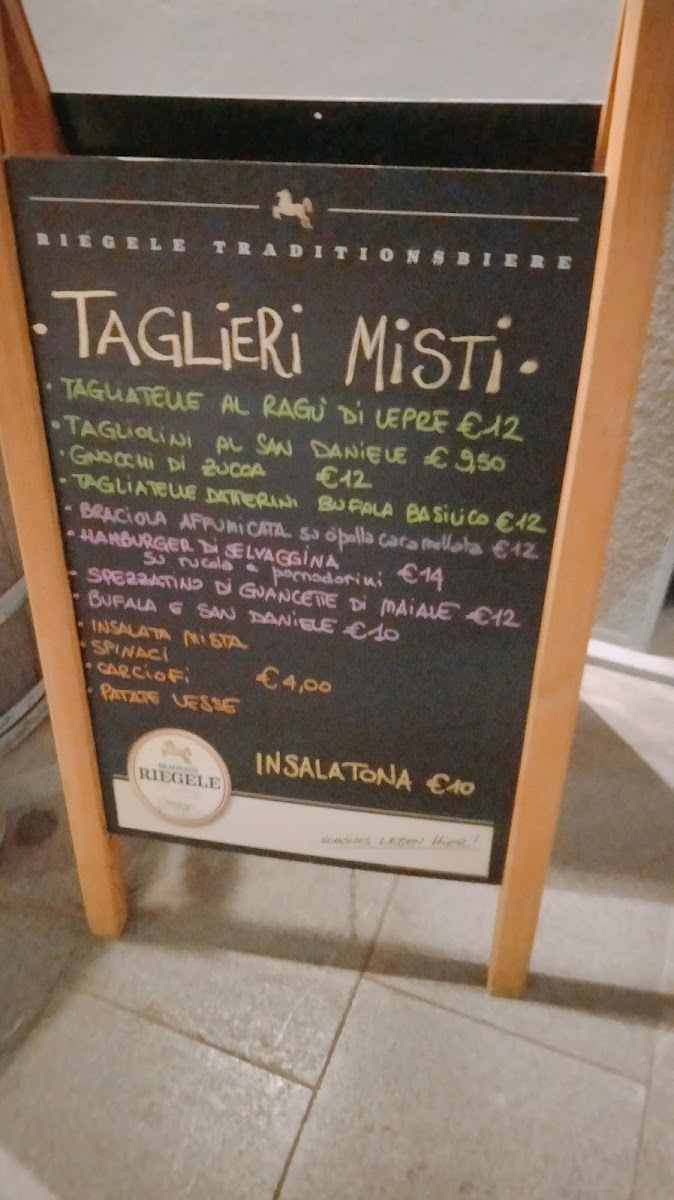 RIEGELE TRADITIONSBIERE
· TAGLIERI MISTI ·
· TAGLIATELLE AL RAGÙ DI LEPRE €12
· TAGLIOLINI AL SAN DANIELE € 9,50
· GNOCCHI DI ZUCCA €12
· TAGLIATELLE DATTERINI BUFALA BASILICO €12
· BRACIOLA AFFUMICATA su cipolla caramellata €12
· HAMBURGER DI SELVAGGINA
su rucola e pomodorini €14
· SPEZZATINO DI GUANCETTE DI MAIALE €12
· BUFALA E SAN DANIELE €10
· INSALATA MISTA
· SPINACI
· CARCIOFI €4,00
· PATATE LESSE
INSALATONA €10
BRAUHAUS
RIEGELE
SCHÖNES LEBEN HIER!